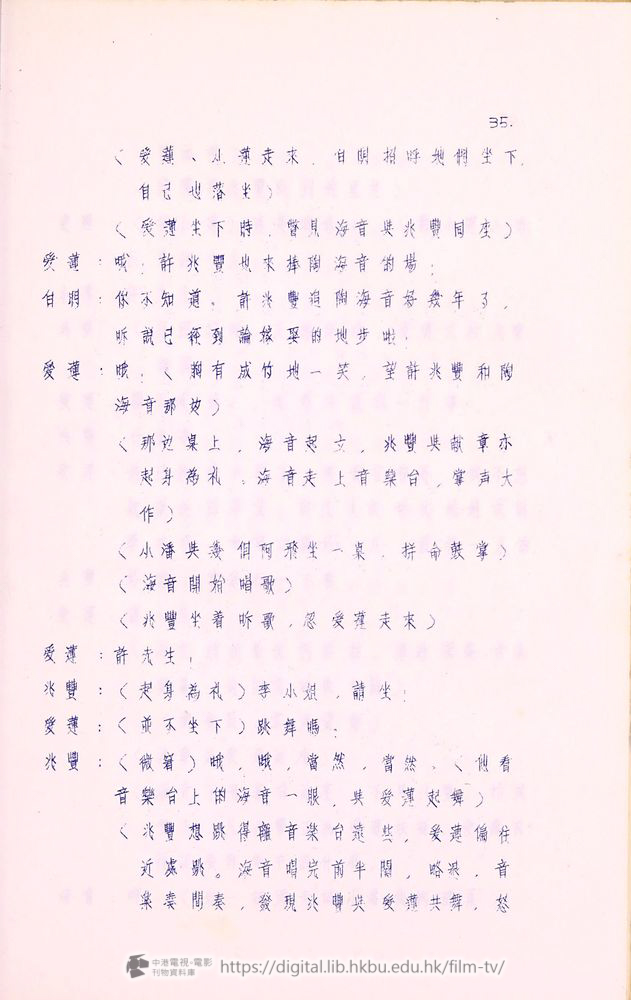 35.
(愛蓮、小蓮走來,白明招呼她們坐下,
自己也落坐)
(愛蓮坐下時,瞥見海音與兆豐同座)
愛蓮:哦,許兆豐也來捧陶海音的場!
白明:你不知道,許兆豐追陶海音好幾年了,
听說已經到論嫁娶的地步啦!
愛蓮:哦!(胸有成竹地一笑,望許兆豐和陶
海音那边)
(那边桌上,海音起立,兆豐與獻章亦
起身為礼,海音走上音樂台,掌声大
作)
(小潘與幾個阿飛坐一桌,拼命鼓掌)
(海音開始唱歌)
(兆豐坐着听歌,忽愛蓮走來)
愛蓮:許先生!
兆豐:(起身為礼)李小姐,請坐!
愛蓮:(並不坐下)跳舞嗎?
兆豐:(微窘)哦,哦,當然,當然。(他看
音樂台上的海音一眼,與愛蓮起舞)
(兆豐想跳得離音樂台遠些,愛蓮偏往
近處跳。海音唱完前半闋,略退,音
樂奏間奏,發現兆豐與愛蓮共舞,怒
中港電視·電影
刊物資料庫
https://digital.lib.hkbu.edu.hk/film-tv/